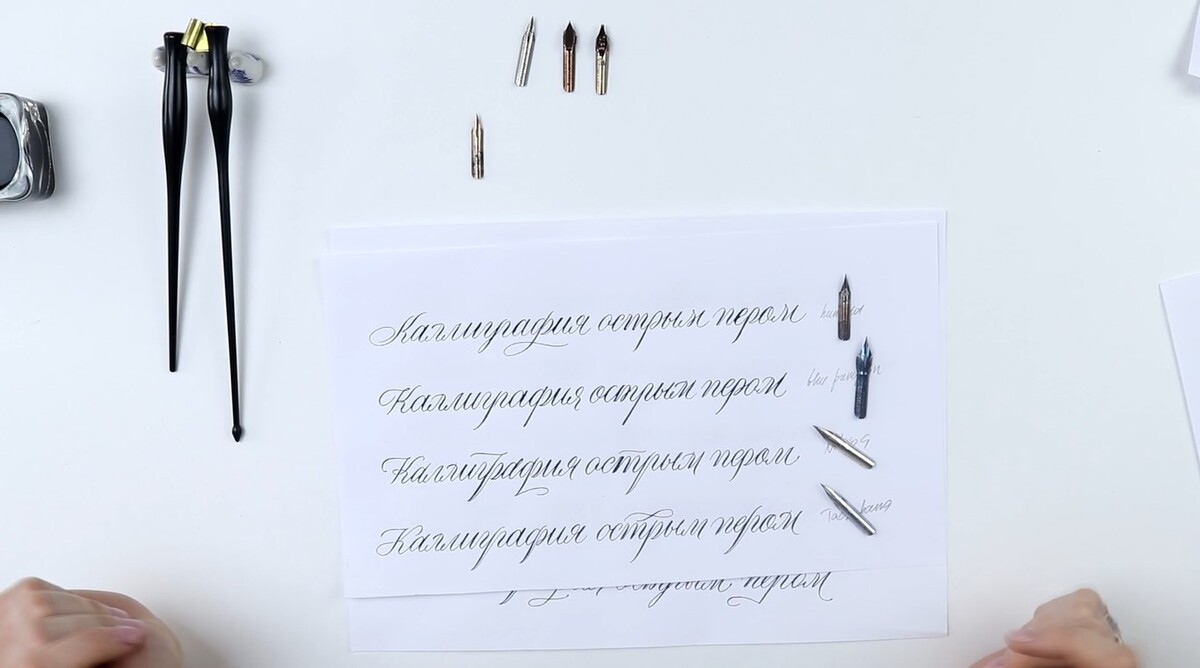 Каллиграфия острым пером
Каллиграфия острым пером blue
Каллиграфия острым пером
Каллиграфия острым пером
острым пером